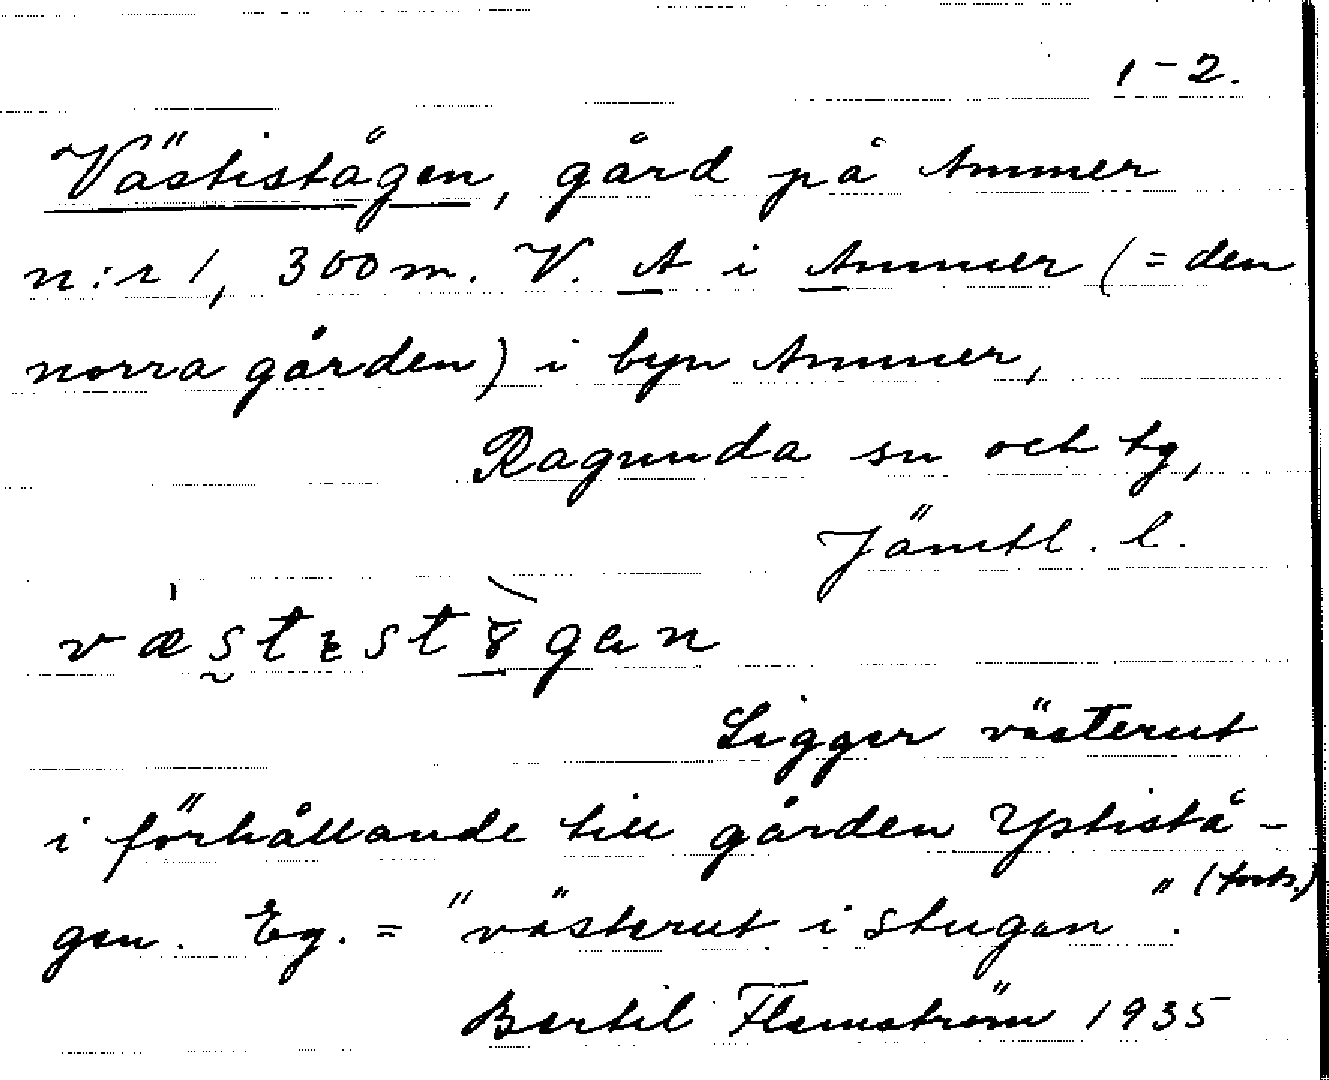 1-2.
Västistågen, gård på Ammer
n:r 1, 300 m. V. A i Ammer (= den
norra gården) i byn Ammer,
Ragunda sn och tg,
Jämtl. l.
Ligger västerut
i förhållande till gården Yptistå-
gen. Eg. = "västerut i stugan". (forts.)
Bertil Flemström 1935